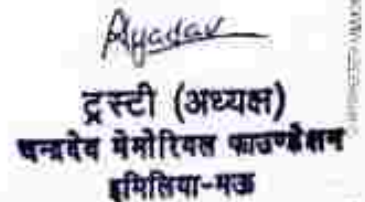 Ryadav
ट्रस्टी (अध्यक्ष)
चन्द्रदेव मेमोरियल फाउण्डेशन
इमिलिया-मऊ